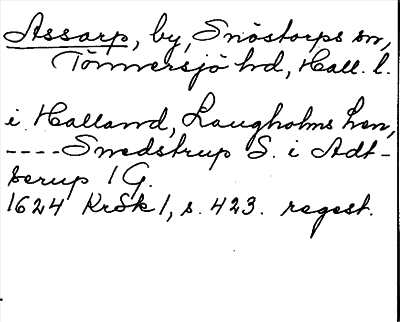 Assarp, by, Snöstorps sn,
Tönnersjö hd, Hall. l.
i Halland, Laugholms Len,
---- Smedstrup S. i Adt-
serup 1 G.
1624 KrSk 1, s. 423. regest.